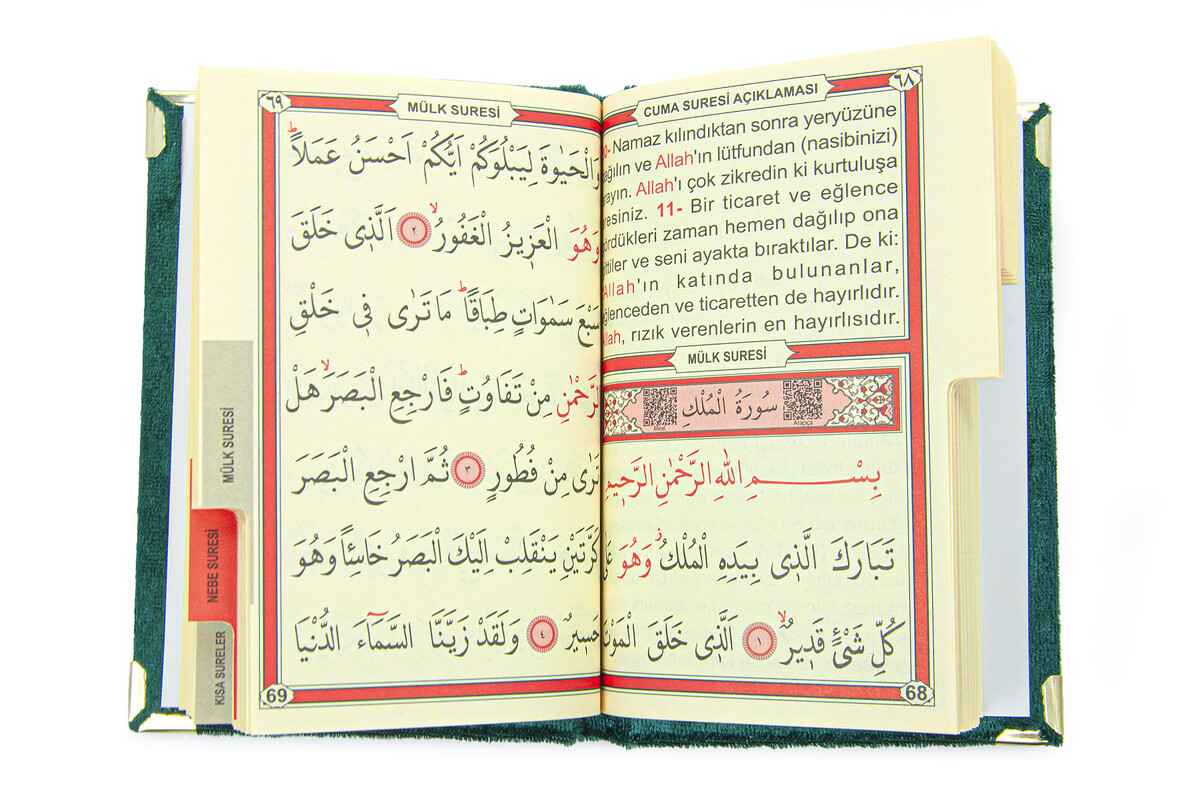 ٦٨
CUMA SURESİ AÇIKLAMASI
0- Namaz kılındıktan sonra yeryüzüne
ağılın ve Allah'ın lütfundan (nasibinizi)
rayın. Allah'ı çok zikredin ki kurtuluşa
resiniz. 11- Bir ticaret ve eğlence
ördükleri zaman hemen dağılıp ona
ittiler ve seni ayakta bıraktılar. De ki:
Allah'ın katında bulunanlar,
ğlenceden ve ticaretten de hayırlıdır.
llah, rızık verenlerin en hayırlısıdır.
MÜLK SURESİ
سُورَةُ الْمُلْكِ
Meal Arapça
بِسْمِ اللهِ الرَّحْمٰنِ الرَّحٖيمِ
تَبَارَكَ الَّذٖى بِيَدِهِ الْمُلْكُ وَهُوَ عَلٰى
كُلِّ شَيْءٍ قَدٖيرٌ ۙ ١ اَلَّذٖى خَلَقَ الْمَوْتَ
68
٦٩
MÜLK SURESİ
وَالْحَيٰوةَ لِيَبْلُوَكُمْ اَيُّكُمْ اَحْسَنُ عَمَلًا ؕ
وَهُوَ الْعَزٖيزُ الْغَفُورُ ۙ ٢ اَلَّذٖى خَلَقَ
سَبْعَ سَمٰوَاتٍ طِبَاقًا ؕ مَا تَرٰى فٖى خَلْقِ
الرَّحْمٰنِ مِنْ تَفَاوُتٍ ؕ فَارْجِعِ الْبَصَرَ ۙ هَلْ
تَرٰى مِنْ فُطُورٍ ٣ ثُمَّ ارْجِعِ الْبَصَرَ
كَرَّتَيْنِ يَنْقَلِبْ اِلَيْكَ الْبَصَرُ خَاسِئًا وَهُوَ
حَسٖيرٌ ٤ وَلَقَدْ زَيَّنَّا السَّمَآءَ الدُّنْيَا
69
MÜLK SURESİ
NEBE SURESİ
KISA SURELER